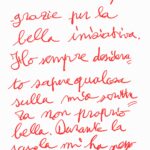 grazie per la
bella iniziativa.
Ho sempre desidera
to sapere qualcosa
sulla mia
za non proprio
bella. Durante la
mi ha